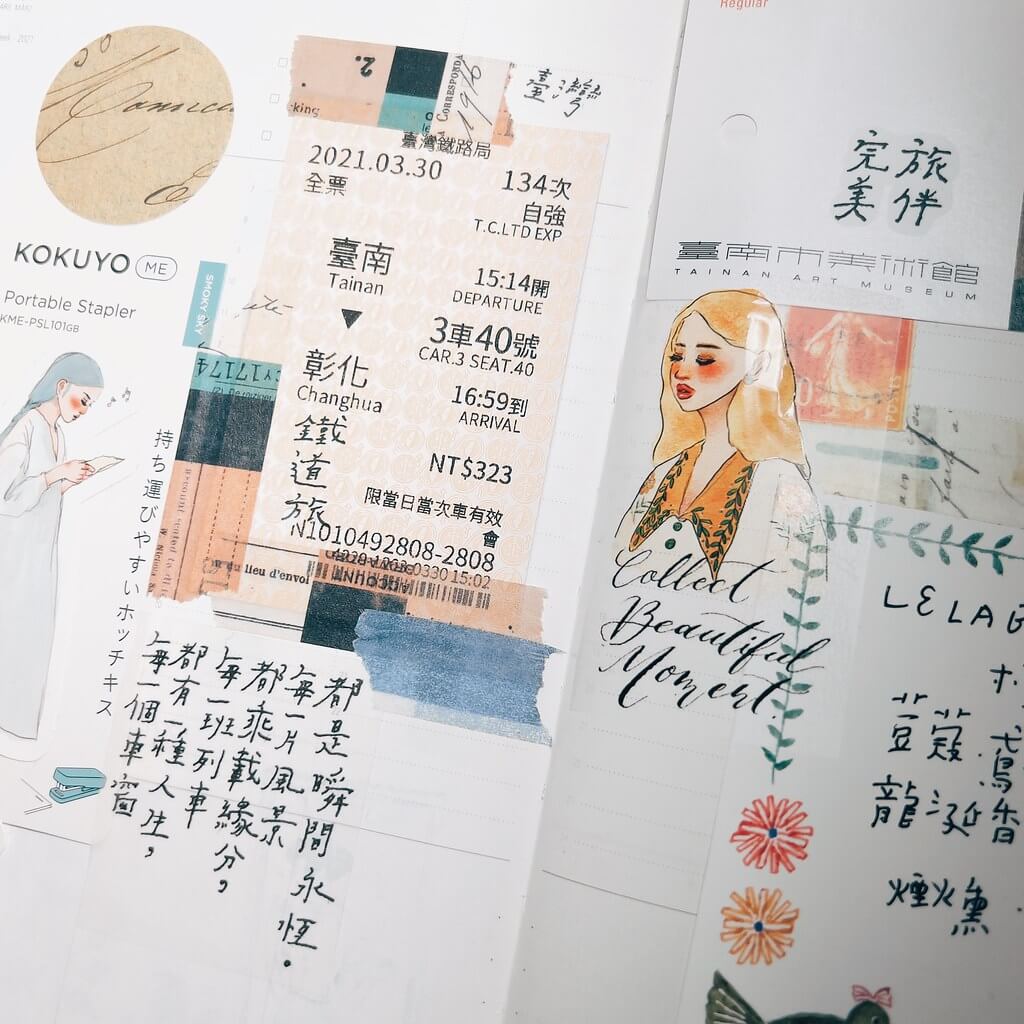 KOKUYO ME
Portable Stapler
KME-PSL101GB
持ち運びやすいホッチキス
SMOKY SKY
2.
CORRESPONDA
1916
臺灣
臺灣鐵路局
2021.03.30
134次
全票
自強
T.C.LTD EXP
臺南
Tainan
15:14開
DEPARTURE
▼
3車40號
CAR.3 SEAT.40
彰化
Changhua
16:59到
ARRIVAL
鐵道旅
NT$323
限當日當次車有效
會
N1010492808-2808
lieu d'envoi
每一個車窗
都有一種人生，
每一班列車
都乘載緣分，
每一片風景
都是瞬間永恆。
Regular
完美
旅伴
臺南市美術館
TAINAN ART MUSEUM
Collect
Beautiful
Moment.
豆蔻
龍涎香
煙火熏